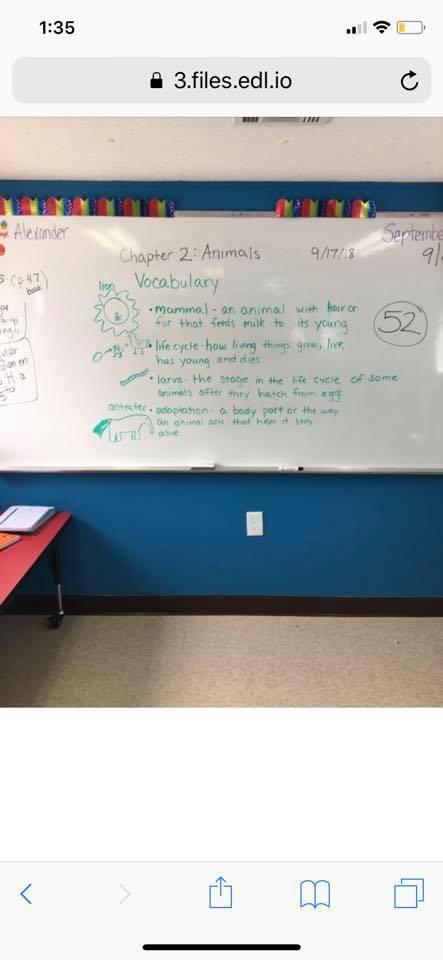 1:35
3.files.edl.io
Alexander
Septembe
Chapter 2: Animals
9/17/18
9/
(p.47)
book
Vocabulary
lion
• mammal - an animal with hair or
fur that feeds milk to its young
52
• life cycle - how living things grow, live,
has young, and dies
• larva - the stage in the life cycle of some
animals after they hatch from eggs
anteater • adaptation - a body part or the way
an animal acts that helps it stay
alive